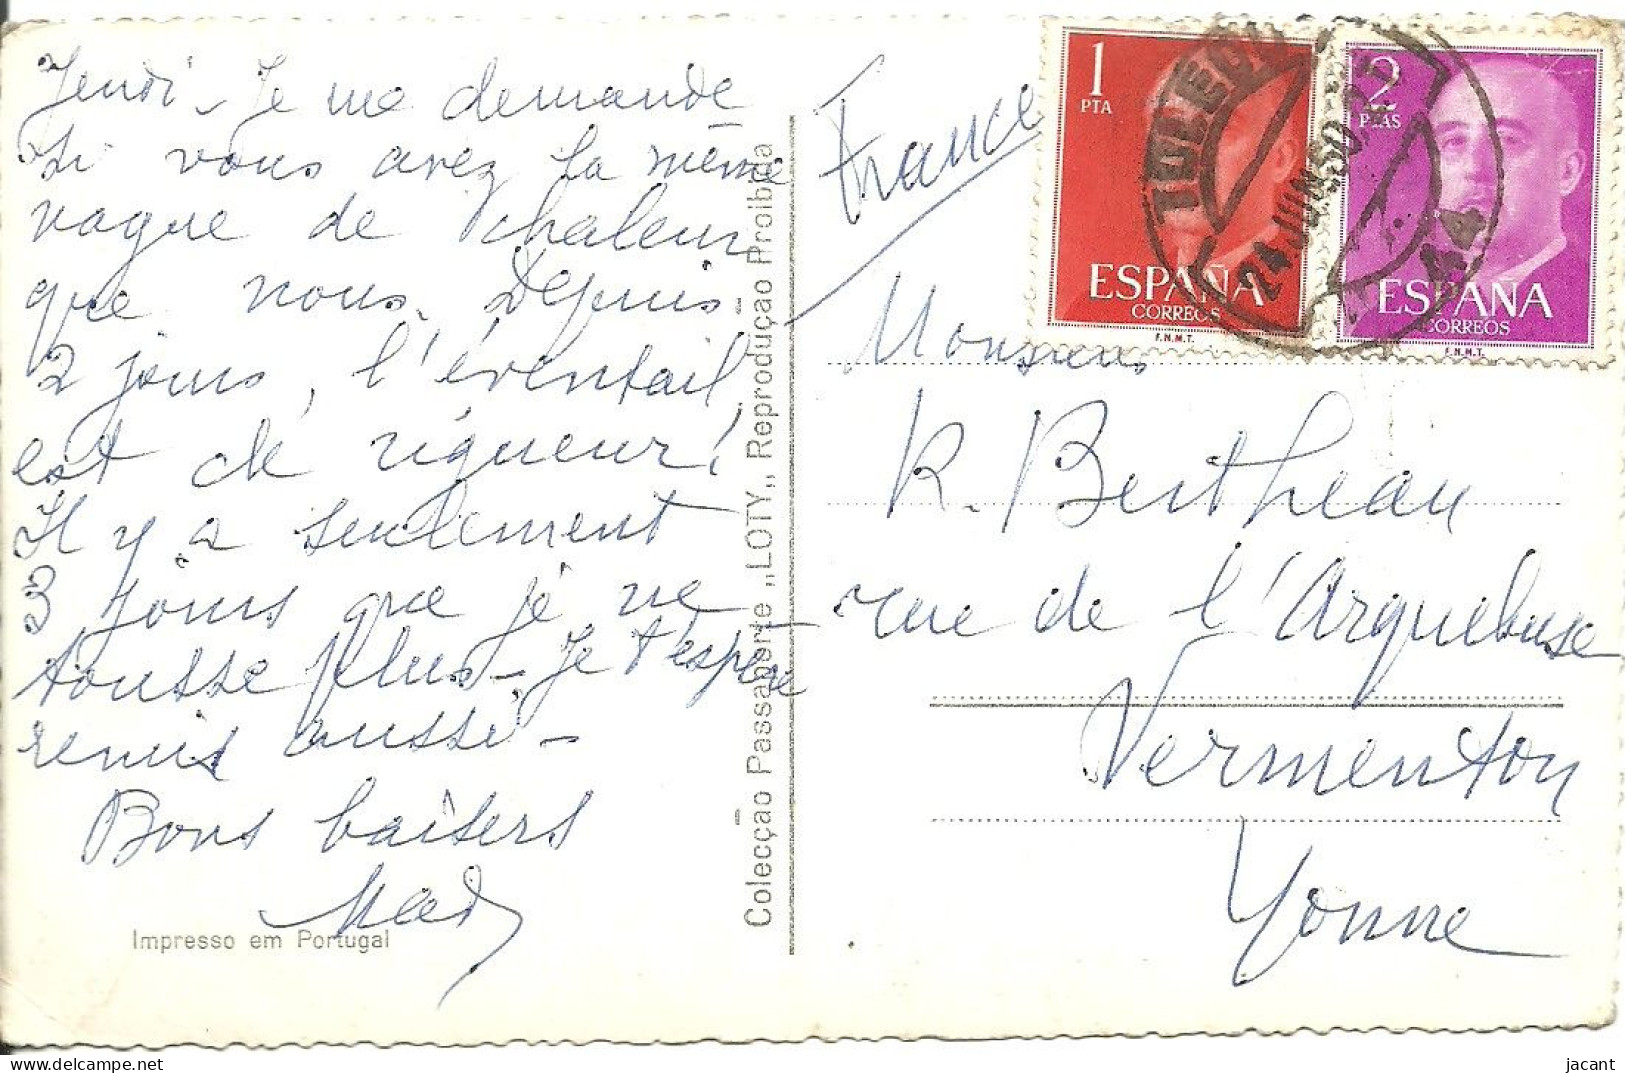 Jeudi - Je me demande
si vous avez la même
vague de chaleur
que nous. Depuis
2 jours, l'éventail
est de rigueur!
Il y a seulement
3 jours que je ne
tousse plus - Je t'espère
remis aussi -
Bons baisers
Mady
Impresso em Portugal
Colecção Passaporte „LOTY„ Reprodução Proibida
France
1
PTA
ESPAÑA
CORREOS
F.N.M.T.
2
PTAS
ESPAÑA
CORREOS
F.N.M.T.
24 JUN
Monsieur
R. Bertheau
rue de l'Arquebuse
Vermenton
Yonne
jacant